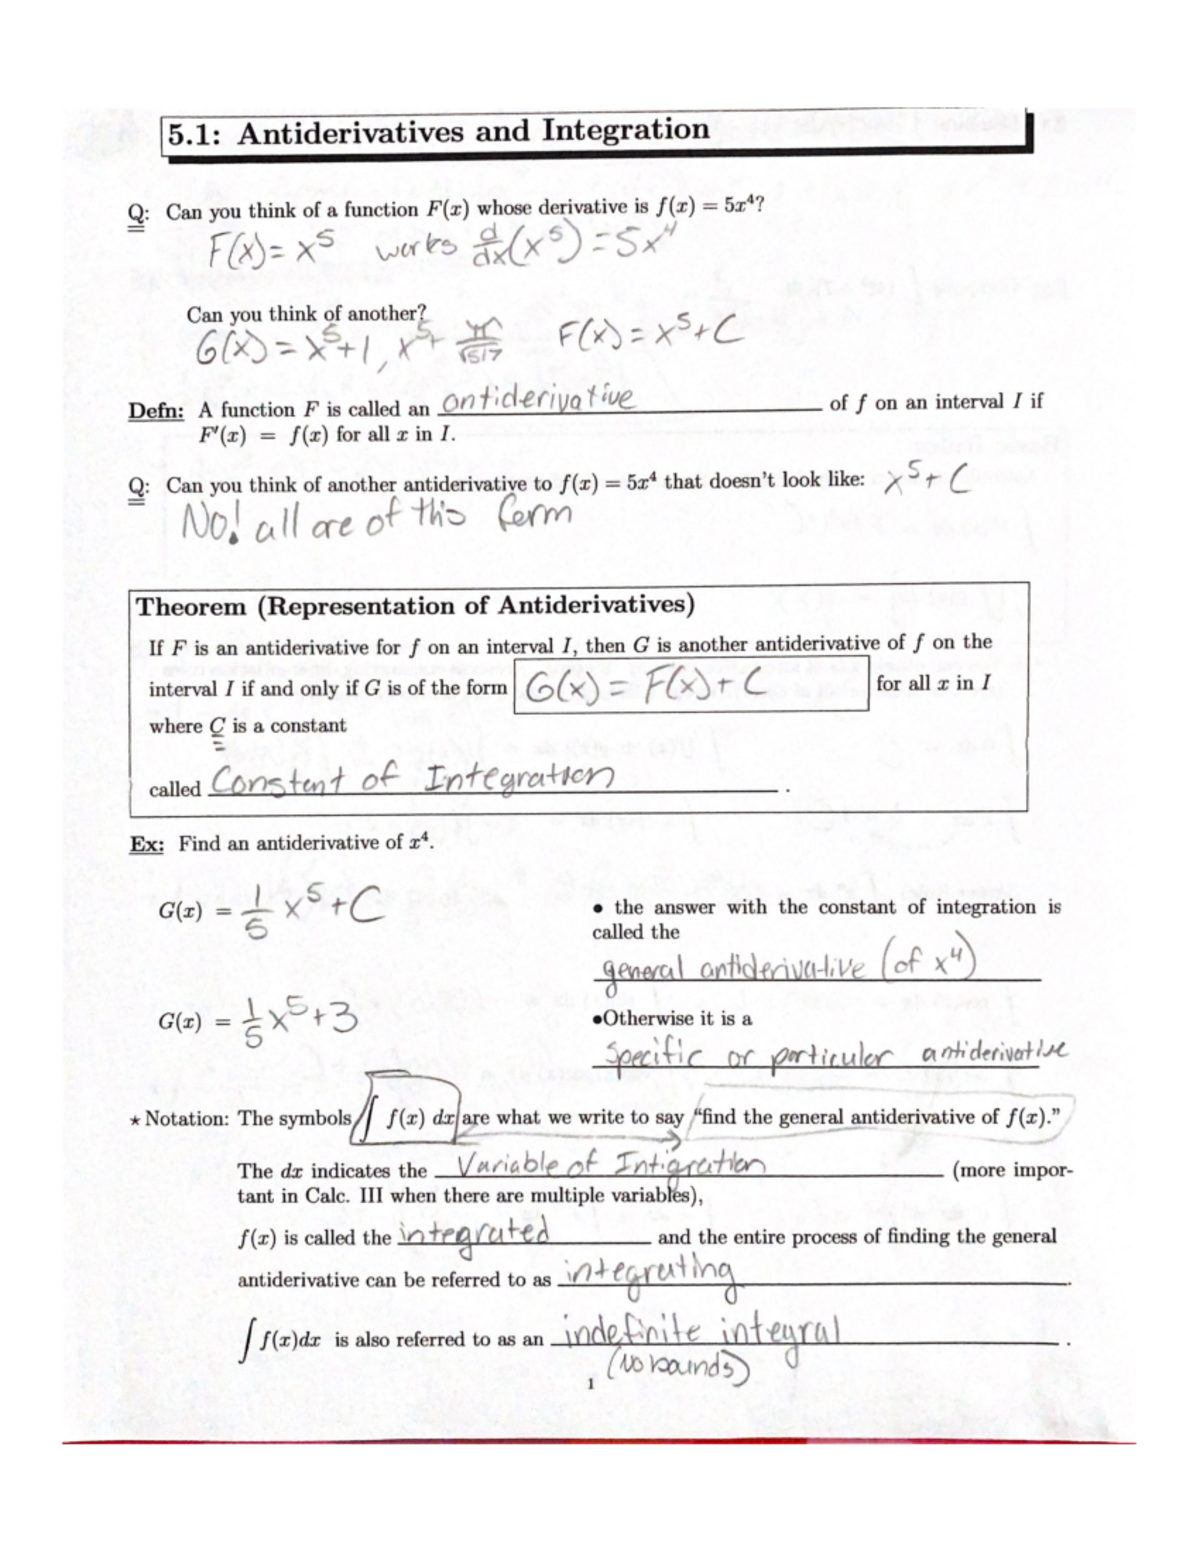 5.1: Antiderivatives and Integration
Q: Can you think of a function F(x) whose derivative is f(x) = 5x⁴?
F(x) = x⁵ works d/dx(x⁵) = 5x⁴
Can you think of another?
G(x) = x⁵+1, x⁵+ F(x) = x⁵+C
Defn: A function F is called an antiderivative of f on an interval I if
F′(x) = f(x) for all x in I.
Q: Can you think of another antiderivative to f(x) = 5x⁴ that doesn't look like: x⁵+C
NO! all are of this form
Theorem (Representation of Antiderivatives)
If F is an antiderivative for f on an interval I, then G is another antiderivative of f on the
interval I if and only if G is of the form G(x) = F(x)+C for all x in I
where C is a constant
called Constant of Integration .
Ex: Find an antiderivative of x⁴.
G(x) = 1/5 x⁵+C
• the answer with the constant of integration is
called the
general antiderivative (of x⁴)
G(x) = 1/5 x⁵+3
•Otherwise it is a
specific or particular antiderivative
⋆ Notation: The symbols ∫ f(x) dx are what we write to say "find the general antiderivative of f(x)."
The dx indicates the Variable of Intigration (more impor-
tant in Calc. III when there are multiple variables),
f(x) is called the integrated and the entire process of finding the general
antiderivative can be referred to as integrating .
∫ f(x)dx is also referred to as an indefinite integral .
(No bounds)
1